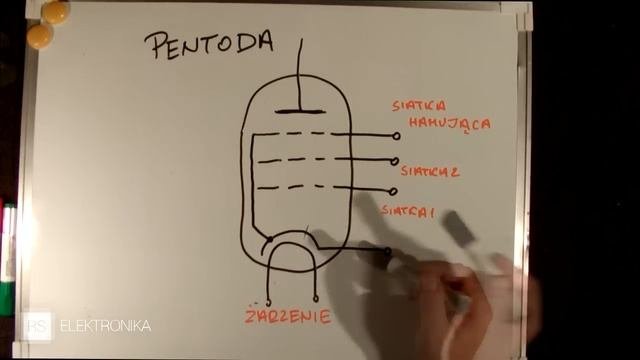 PENTODA
SIATKA
HAMUJĄCA
SIATKA 2
SIATKA 1
ŻARZENIE
RS ELEKTRONIKA